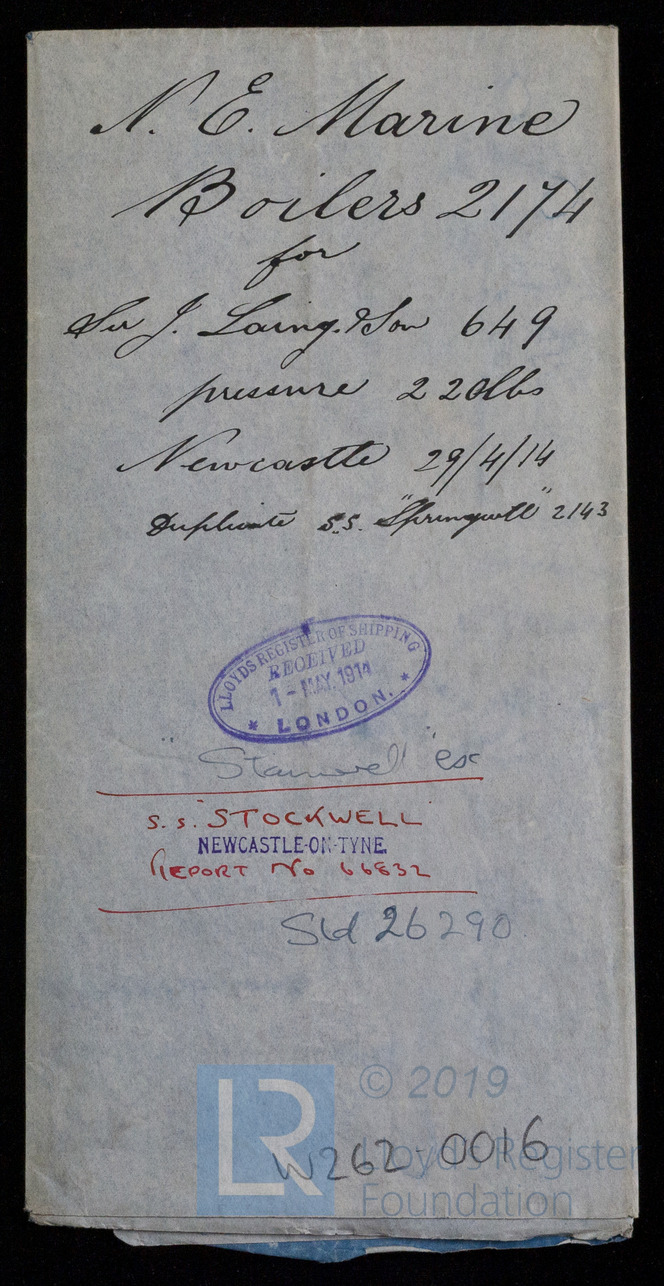 N. E. Marine
Boilers 2174
for
Sir J. Laing. & Son 649
pressure 220lbs
Newcastle 29/4/14
Duplicate S.S. "Springwell" 2143
LLOYDS REGISTER OF SHIPPING
RECEIVED
1 - MAY. 1914
* LONDON. *
Stanwell" ex
S.S. "STOCKWELL"
NEWCASTLE-ON-TYNE.
REPORT No 66832
Sld 26290
LR © 2019
Lloyd's Register
Foundation
W262-0016